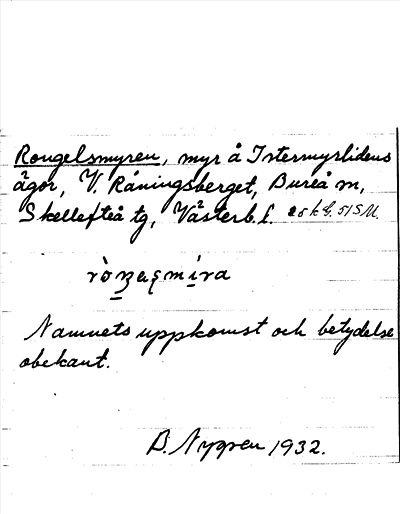 Rougelsmyren, myr å Istermyrlidens
ägor, V. Råningsberget, Bureå sn,
Skellefteå tg, Västerb.l.
Namnets uppkomst och betydelse
obekant.
B. Nygren 1932.